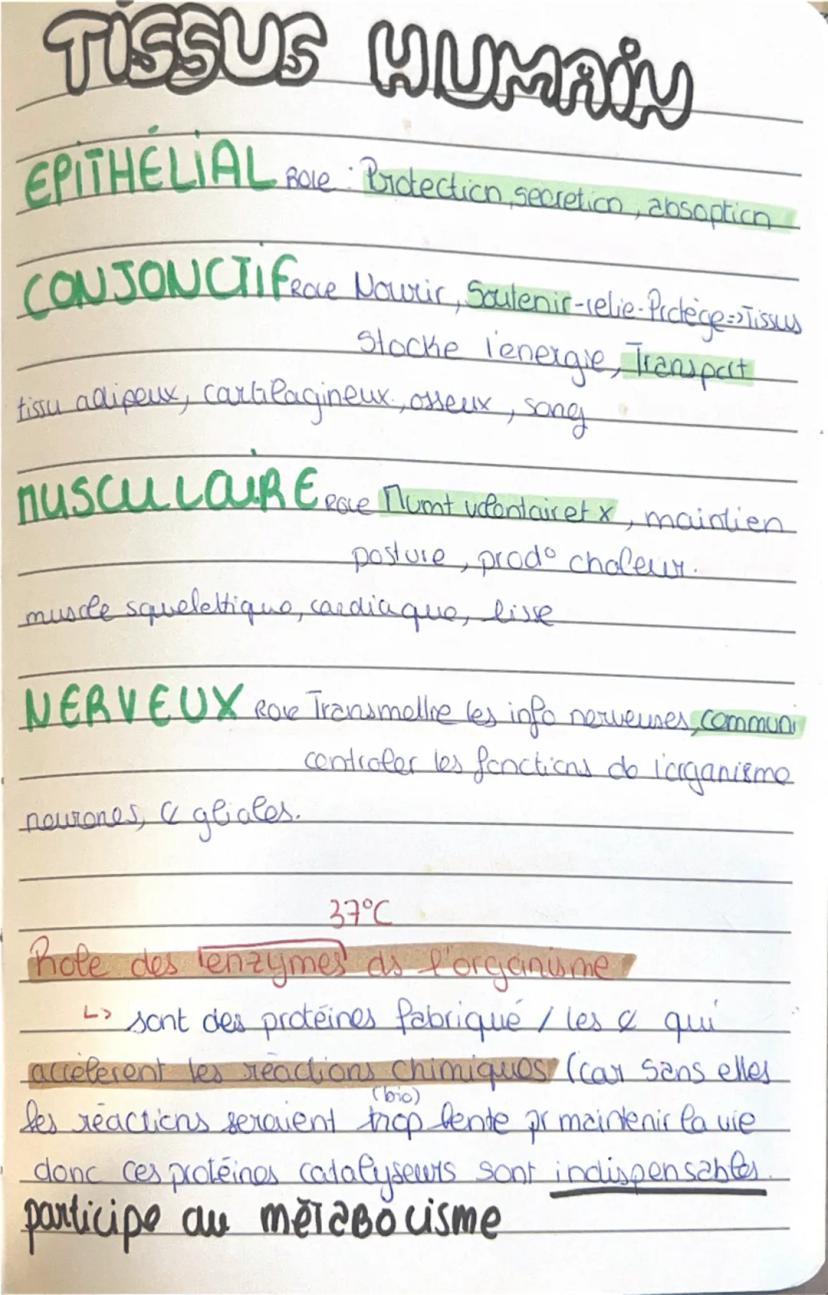 TISSUS HUMAIN
EPITHÉLIAL Role : Protection, secretion, absoption
CONJONCTIF Role Nourrir, Soutenir-relie-Protège=>Tissus
Stocke l'energie, Transport
tissu adipeux, cartilagineux, osseux, sang
MUSCULAIRE Role Mvmt volontaire et x, maintien
posture, prod° chaleur.
muscle squelettique, cardiaque, lisse
NERVEUX Role Transmettre les info nerveuses, communi
controler les fonctions de l'organisme
neurones, ¢ gliales.
37°C
Role des enzymes ds l'organisme
↳ sont des protéines fabriqué / les ¢ qui
accélèrent les réactions chimiques (car sans elles
(bio)
les réactions seraient trop lente pr maintenir la vie
donc ces protéines catalyseurs sont indispensables.
participe au métabolisme